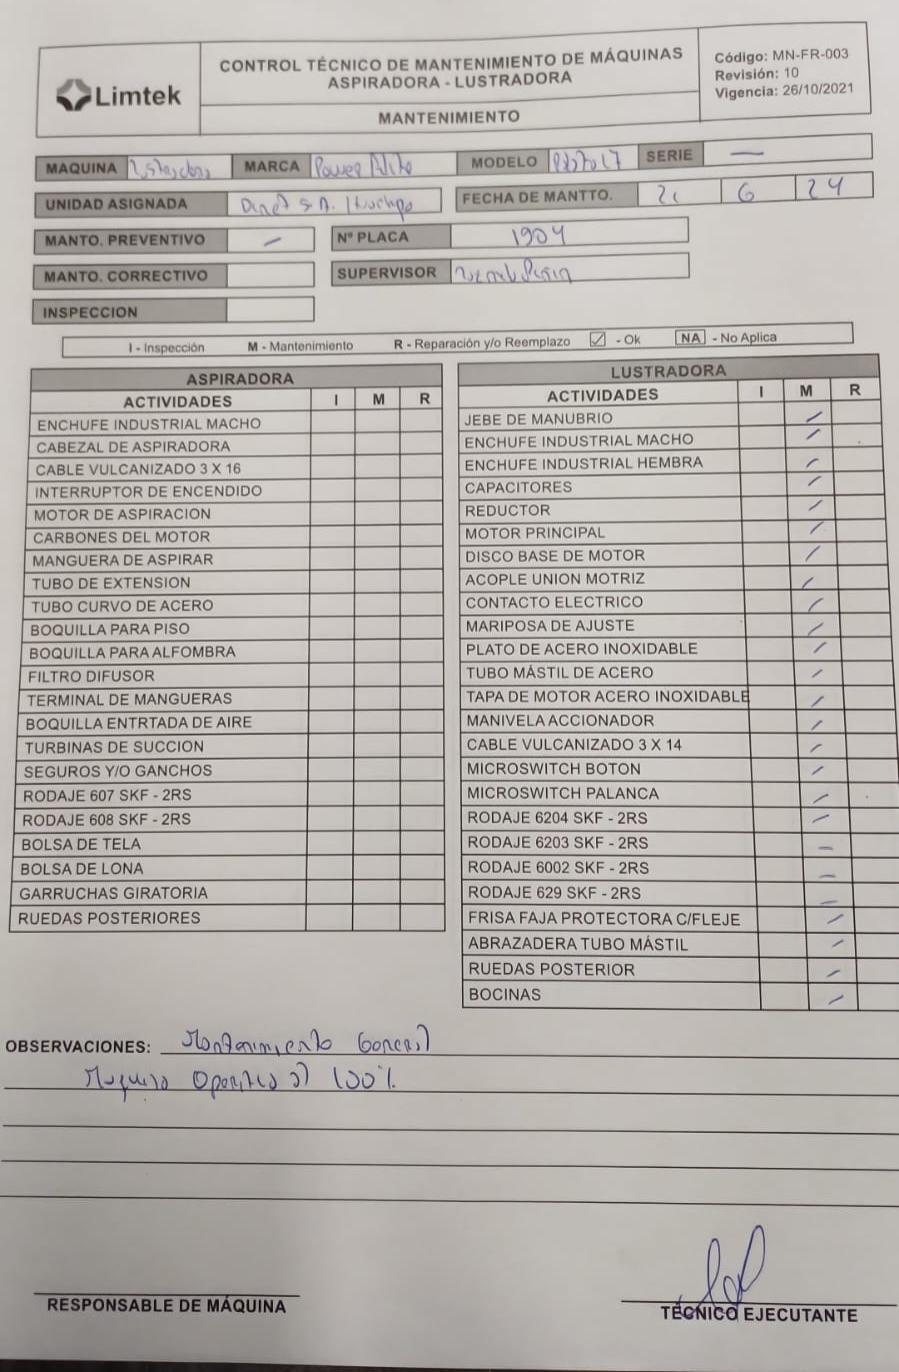 Limtek
CONTROL TÉCNICO DE MANTENIMIENTO DE MÁQUINAS
ASPIRADORA - LUSTRADORA
MANTENIMIENTO
Código: MN-FR-003
Revisión: 10
Vigencia: 26/10/2021
MAQUINA Lustradora MARCA Power MODELO SERIE —
UNIDAD ASIGNADA FECHA DE MANTTO. 6 24
MANTO. PREVENTIVO — Nº PLACA 1904
MANTO. CORRECTIVO SUPERVISOR
INSPECCION
I - Inspección M - Mantenimiento R - Reparación y/o Reemplazo ☑ - Ok NA - No Aplica
ASPIRADORA
ACTIVIDADES I M R
ENCHUFE INDUSTRIAL MACHO
CABEZAL DE ASPIRADORA
CABLE VULCANIZADO 3 X 16
INTERRUPTOR DE ENCENDIDO
MOTOR DE ASPIRACION
CARBONES DEL MOTOR
MANGUERA DE ASPIRAR
TUBO DE EXTENSION
TUBO CURVO DE ACERO
BOQUILLA PARA PISO
BOQUILLA PARA ALFOMBRA
FILTRO DIFUSOR
TERMINAL DE MANGUERAS
BOQUILLA ENTRTADA DE AIRE
TURBINAS DE SUCCION
SEGUROS Y/O GANCHOS
RODAJE 607 SKF - 2RS
RODAJE 608 SKF - 2RS
BOLSA DE TELA
BOLSA DE LONA
GARRUCHAS GIRATORIA
RUEDAS POSTERIORES
LUSTRADORA
ACTIVIDADES I M R
JEBE DE MANUBRIO /
ENCHUFE INDUSTRIAL MACHO /
ENCHUFE INDUSTRIAL HEMBRA /
CAPACITORES /
REDUCTOR /
MOTOR PRINCIPAL /
DISCO BASE DE MOTOR /
ACOPLE UNION MOTRIZ /
CONTACTO ELECTRICO /
MARIPOSA DE AJUSTE /
PLATO DE ACERO INOXIDABLE /
TUBO MÁSTIL DE ACERO /
TAPA DE MOTOR ACERO INOXIDABLE /
MANIVELA ACCIONADOR /
CABLE VULCANIZADO 3 X 14 /
MICROSWITCH BOTON /
MICROSWITCH PALANCA /
RODAJE 6204 SKF - 2RS /
RODAJE 6203 SKF - 2RS —
RODAJE 6002 SKF - 2RS —
RODAJE 629 SKF - 2RS —
FRISA FAJA PROTECTORA C/FLEJE /
ABRAZADERA TUBO MÁSTIL /
RUEDAS POSTERIOR /
BOCINAS /
OBSERVACIONES: Mantenimiento General
Maquina Operativa al 100%
RESPONSABLE DE MÁQUINA
TÉCNICO EJECUTANTE